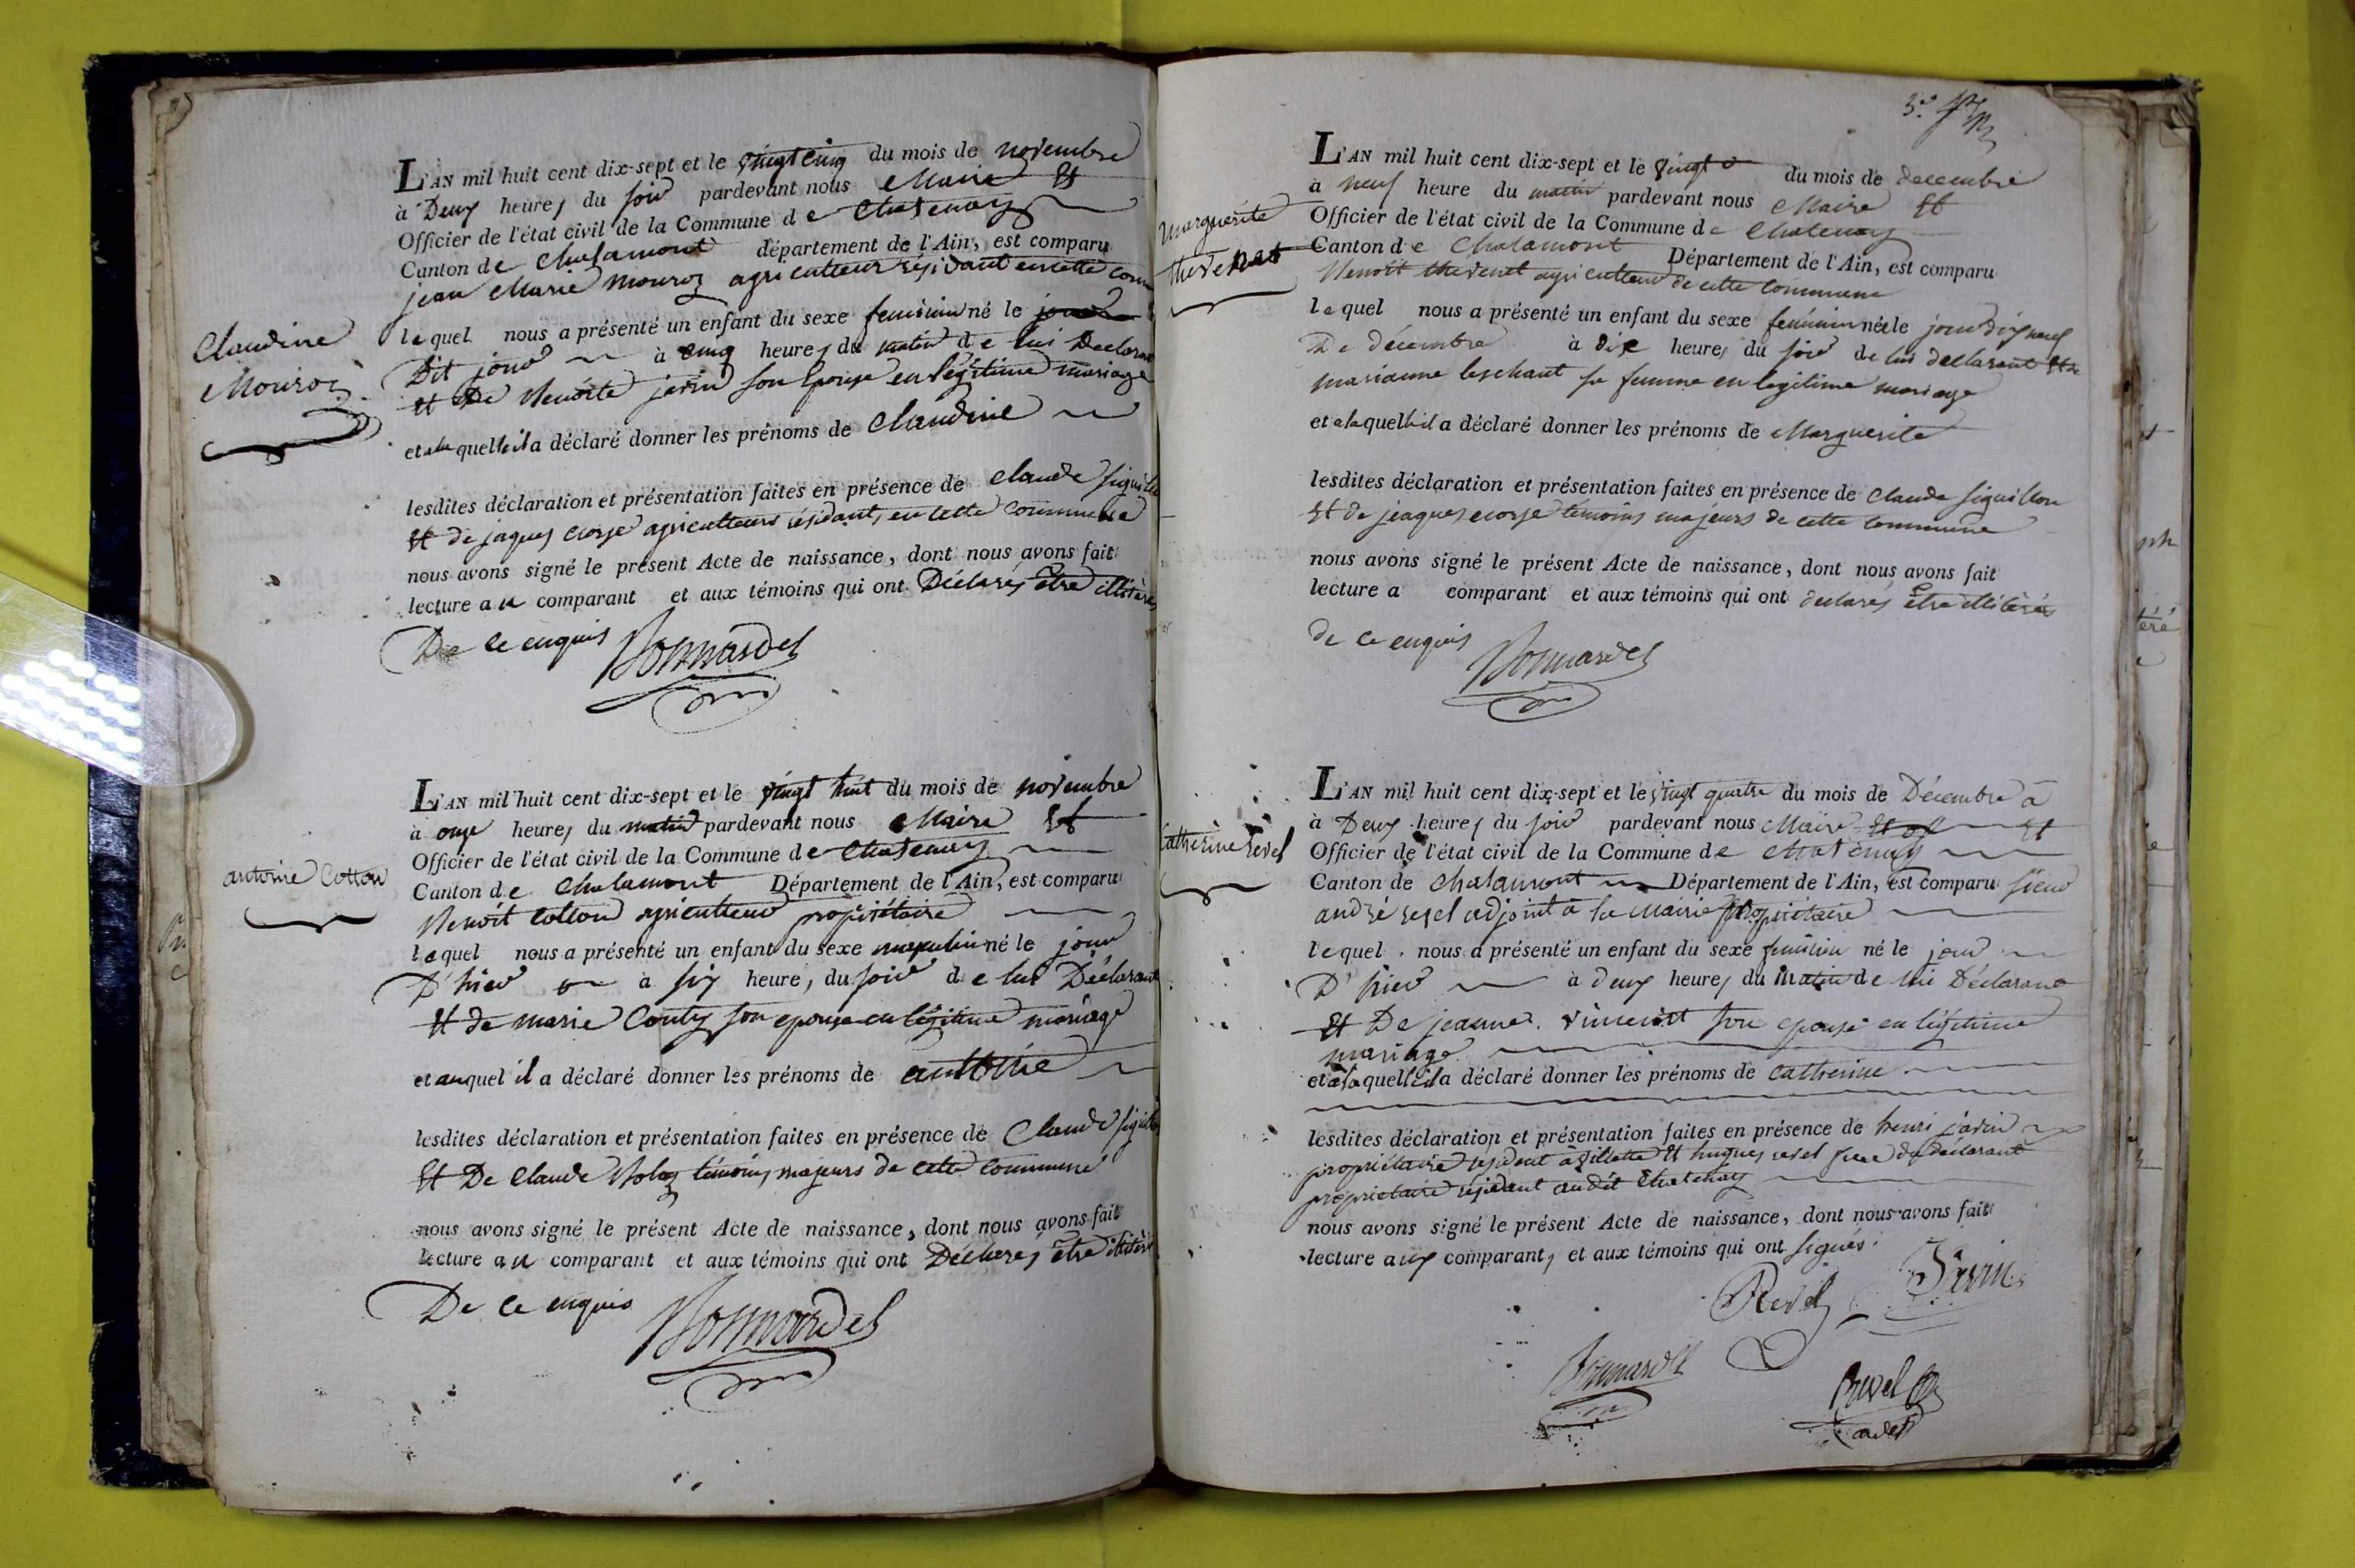 L'AN mil huit cent dix-sept et le vingt cinq du mois de novembre
à Deux heures du soir pardevant nous Maire Et
Officier de l'état civil de la Commune de Chatenay
Canton de Chalamont département de l'Ain, est comparu
jean Marie mouroz agriculteur résidant en cette com
Claudine
Mouroz
lequel nous a présenté un enfant du sexe feminin né le
Dit jour à cinq heures du matin de lui Declarant
Et De Benoite jarin son Epouse en légitime mariage
et a la quelle il a déclaré donner les prénoms de Claudine
lesdites déclaration et présentation faites en présence de Claude siguillon
Et de jaques corse agriculteurs résidant, en cette Commune
nous avons signé le présent Acte de naissance, dont nous avons fait
lecture au comparant et aux témoins qui ont Déclarés être illitérés
De ce enquis Bonnardel
L'AN mil huit cent dix-sept et le vingt huit du mois de novembre
à onze heures du matin pardevant nous Maire Et
Officier de l'état civil de la Commune de Chatenay
antoine Cotton
Canton de Chalamont Département de l'Ain, est comparu
Benoit Cotton agriculteur propriétaire
lequel nous a présenté un enfant du sexe masculin né le jour
D'hier à six heures, du soir de lui Déclarant
Et de marie Couty son epouse en légitime mariage
et auquel il a déclaré donner les prénoms de antoine
lesdites déclaration et présentation faites en présence de Claude siguillon
Et De Claude témoins majeurs de cette Commune
nous avons signé le présent Acte de naissance, dont nous avons fait
lecture au comparant et aux témoins qui ont Déclarés être illitérés
De ce enquis Bonnardel
L'AN mil huit cent dix-sept et le vingt du mois de decembre
à neuf heure du matin pardevant nous Maire Et
Marguerite
thevenet
Officier de l'état civil de la Commune de Chatenay
Canton de Chalamont Département de l'Ain, est comparu
Benoit thevenet agriculteur de cette Commune
lequel nous a présenté un enfant du sexe feminin née le jour dix neuf
De décembre à dix heures du soir de lui declarant Et de
marianne leschant sa femme en legitime mariage
et a laquelle il a déclaré donner les prénoms de Marguerite
lesdites déclaration et présentation faites en présence de Claude siguillon
Et de jeaques corse témoins majeurs de cette Commune
nous avons signé le présent Acte de naissance, dont nous avons fait
lecture a comparant et aux témoins qui ont declarés être illitérés
de ce enquis Bonnardel
L'AN mil huit cent dix-sept et le vingt quatre du mois de Décembre à
à Deux heures du soir pardevant nous Maire Et
Catherine revel
Officier de l'état civil de la Commune de Chatenay
Canton de Chalamont Département de l'Ain, est comparu sieur
andré revel adjoint à la Mairie propriétaire
lequel nous a présenté un enfant du sexe feminin né le jour
D'hier à deux heures du matin de lui Déclarant
Et De jeanne vincent son epouse en légitime
mariage
et à laquelle il a déclaré donner les prénoms de Catherine
lesdites déclaration et présentation faites en présence de henri jarin
propriétaire résidant à villette Et hugues revel frere du déclarant
propriétaire résidant au dit Chatenay
nous avons signé le présent Acte de naissance, dont nous avons fait
lecture aux comparants et aux témoins qui ont signés.
Revel Jarin
Bonnardel
Revel